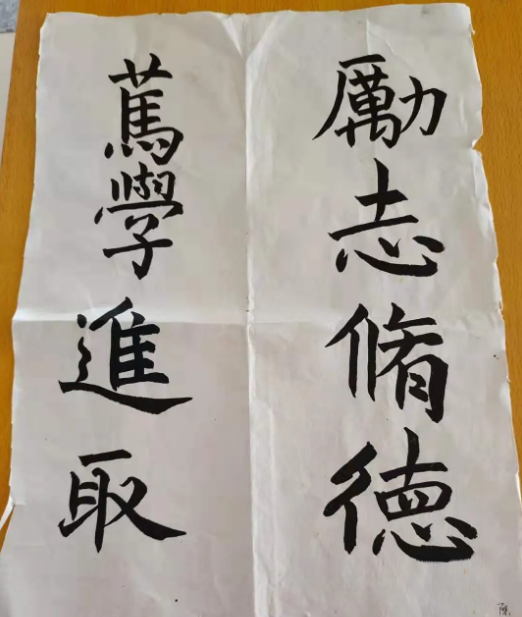 勵志脩德
篤學進取
陳